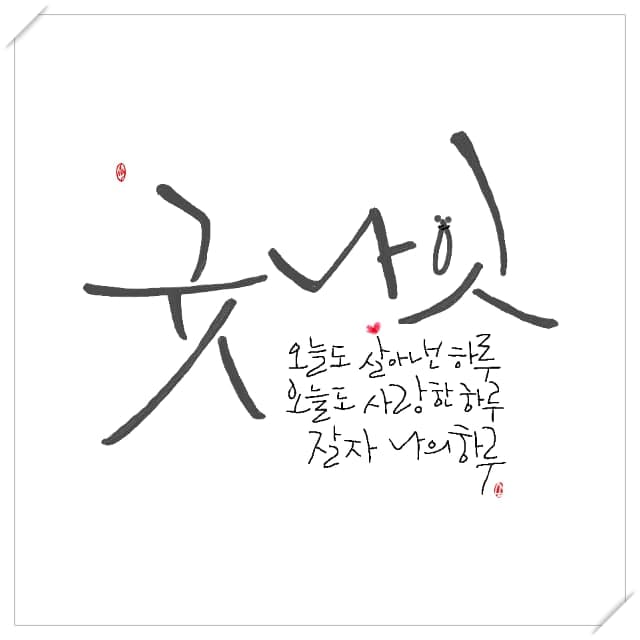 굿나잇
오늘도 살아낸 하루
오늘도 사랑한 하루
잘자 나의하루